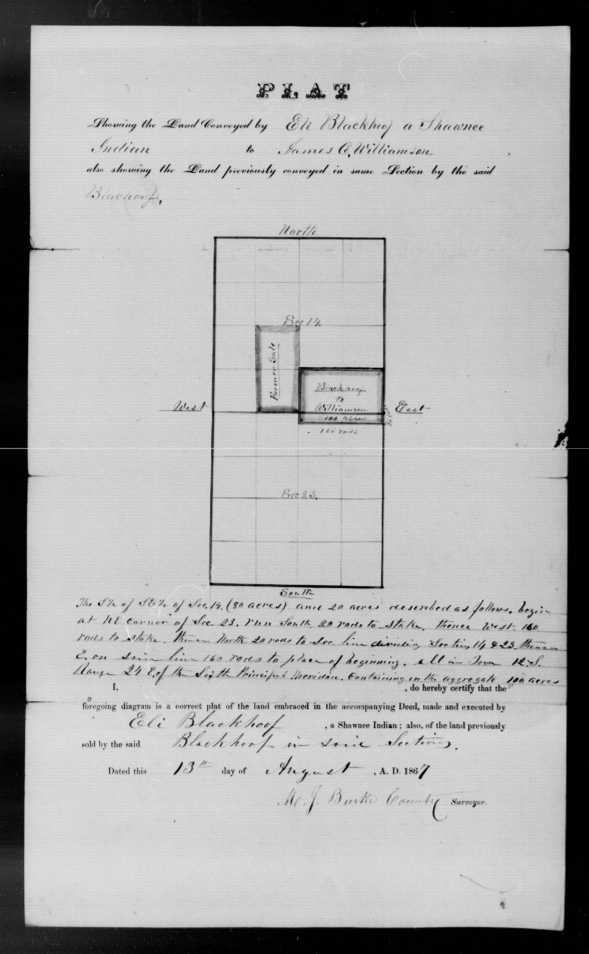 PLAT
Showing the Land Conveyed by Eli Blackhoof a Shawnee
Indian to James C. Williamson
also showing the Land previously conveyed in same Section by the said
Blackhoof.
North
Sec 14.
Former Sale
Blackhoof
to
Williamson
100 Acres
160 rods
West
East
Sec 23.
South
of Sec. 14. (80 acres) and 20 acres described as follows. begin
at NE corner of Sec 23. run South 20 rods to stake, thence West. 160
rods to stake. thence North 20 rods to Sec line dividing Section 14 & 23. thence
E. on line 160 rods to place of beginning. all in Town 12. S.
Range 24 E. of the Sixth Principal Meridian. Containing in the aggregate 100 acres
I, , do hereby certify that the
foregoing diagram is a correct plat of the land embraced in the accompanying Deed, made and executed by
Eli Blackhoof , a Shawnee Indian; also, of the land previously
sold by the said Blackhoof in said Section.
Dated this 13th day of August , A. D. 1867
Burke County Surveyor.